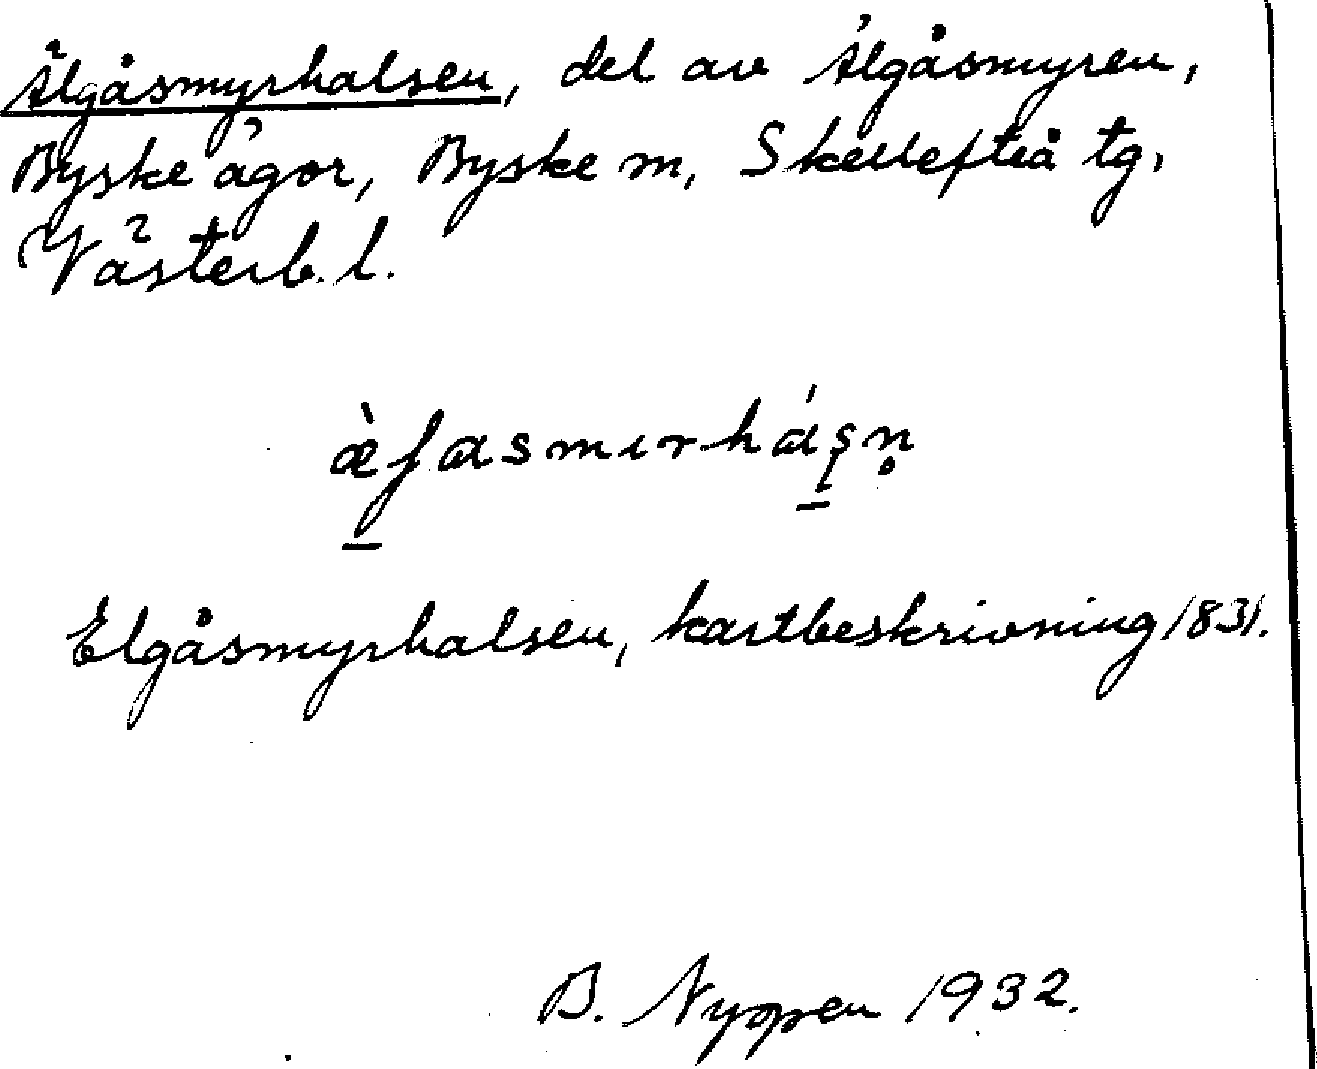 Älgåsmyrhalsen, del av Älgåsmyren,
Byske ägor, Byske m, Skellefteå tg,
Västerb. l.
æ̀ʃasmırhás̩n̥
Elgåsmyrhalsen, kartbeskrivning 1831.
B. Nyqpen 1932.